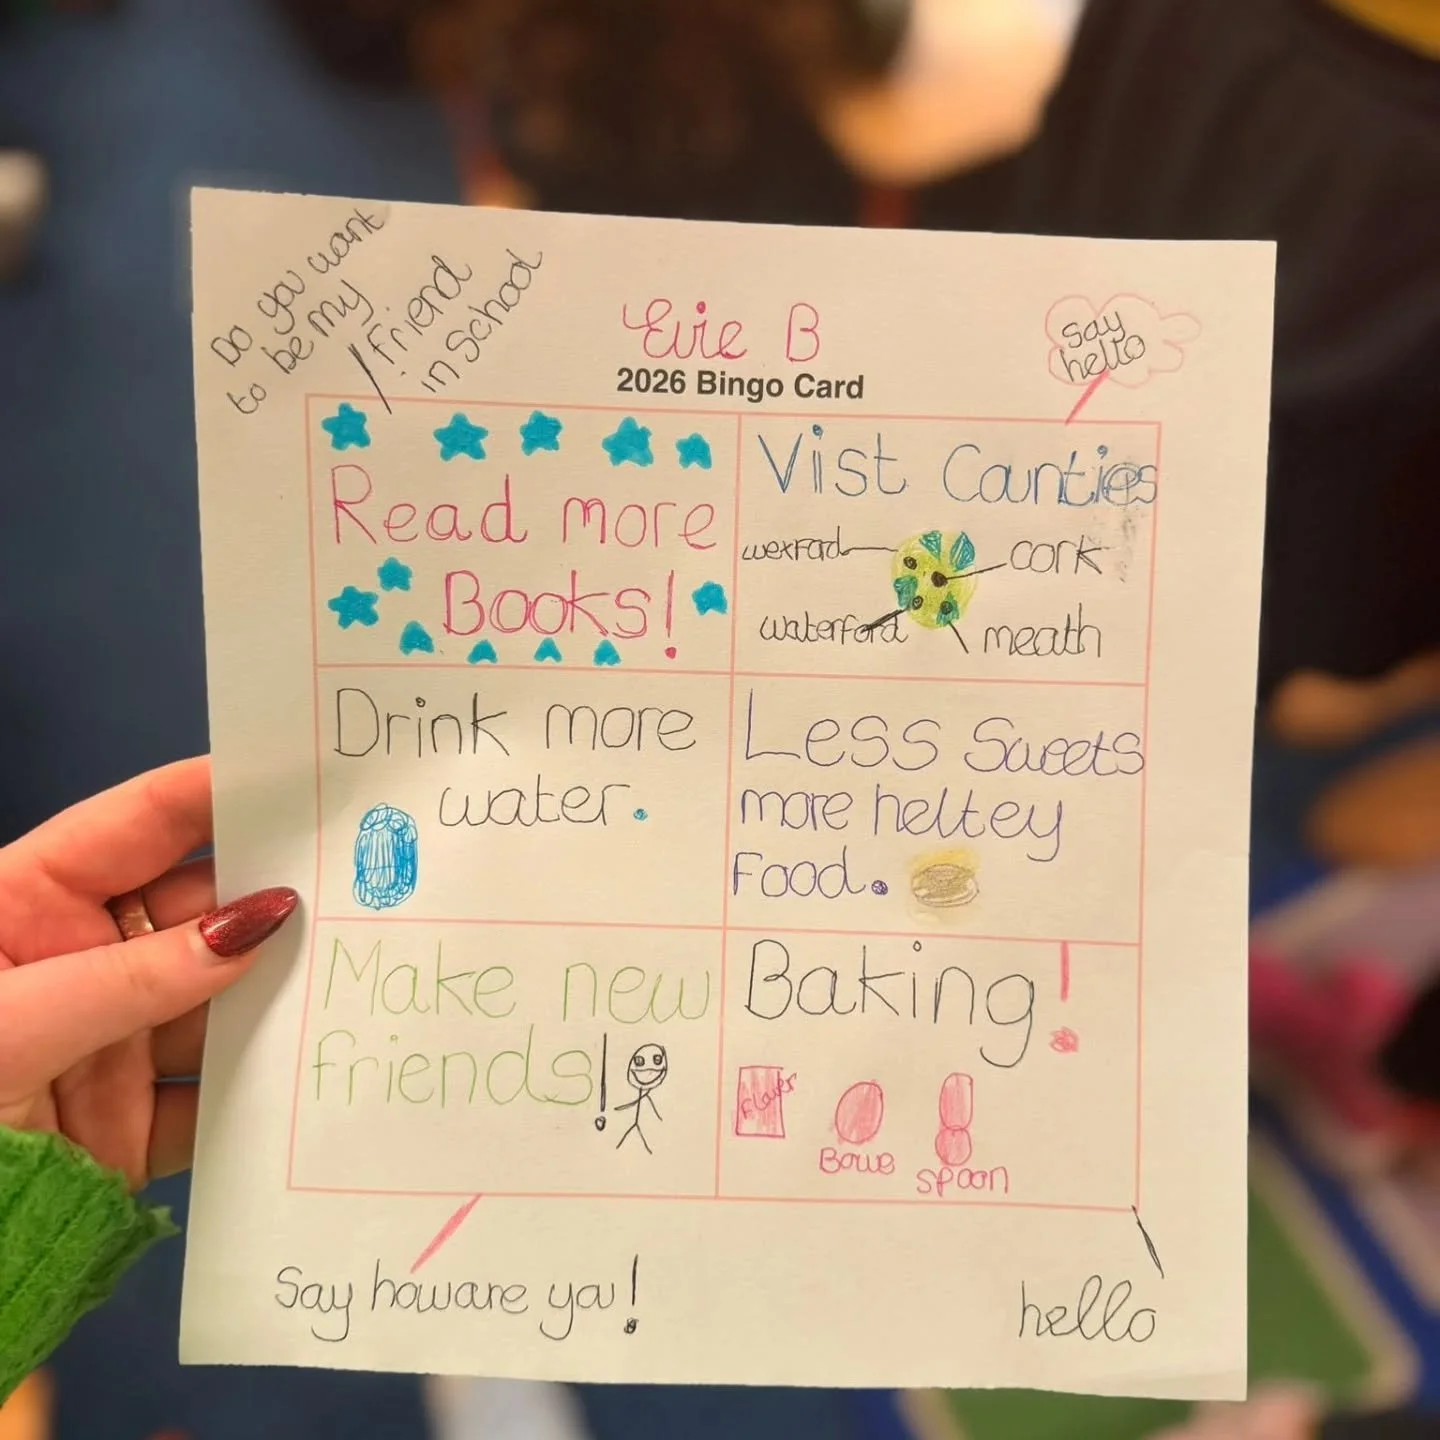 Do you want
to be my
friend
in School
Evie B
2026 Bingo Card
say
hello
Read more
Books!
Vist Counties
wexford
cork
waterford
meath
Drink more
water.
Less Sweets
more heltey
Food.
Make new
friends!
Baking!
Flower
Bowe
spoon
Say howare you!
hello